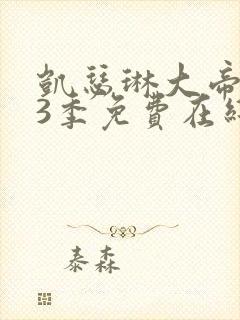 凯瑟琳大帝
3季免费在线
泰森